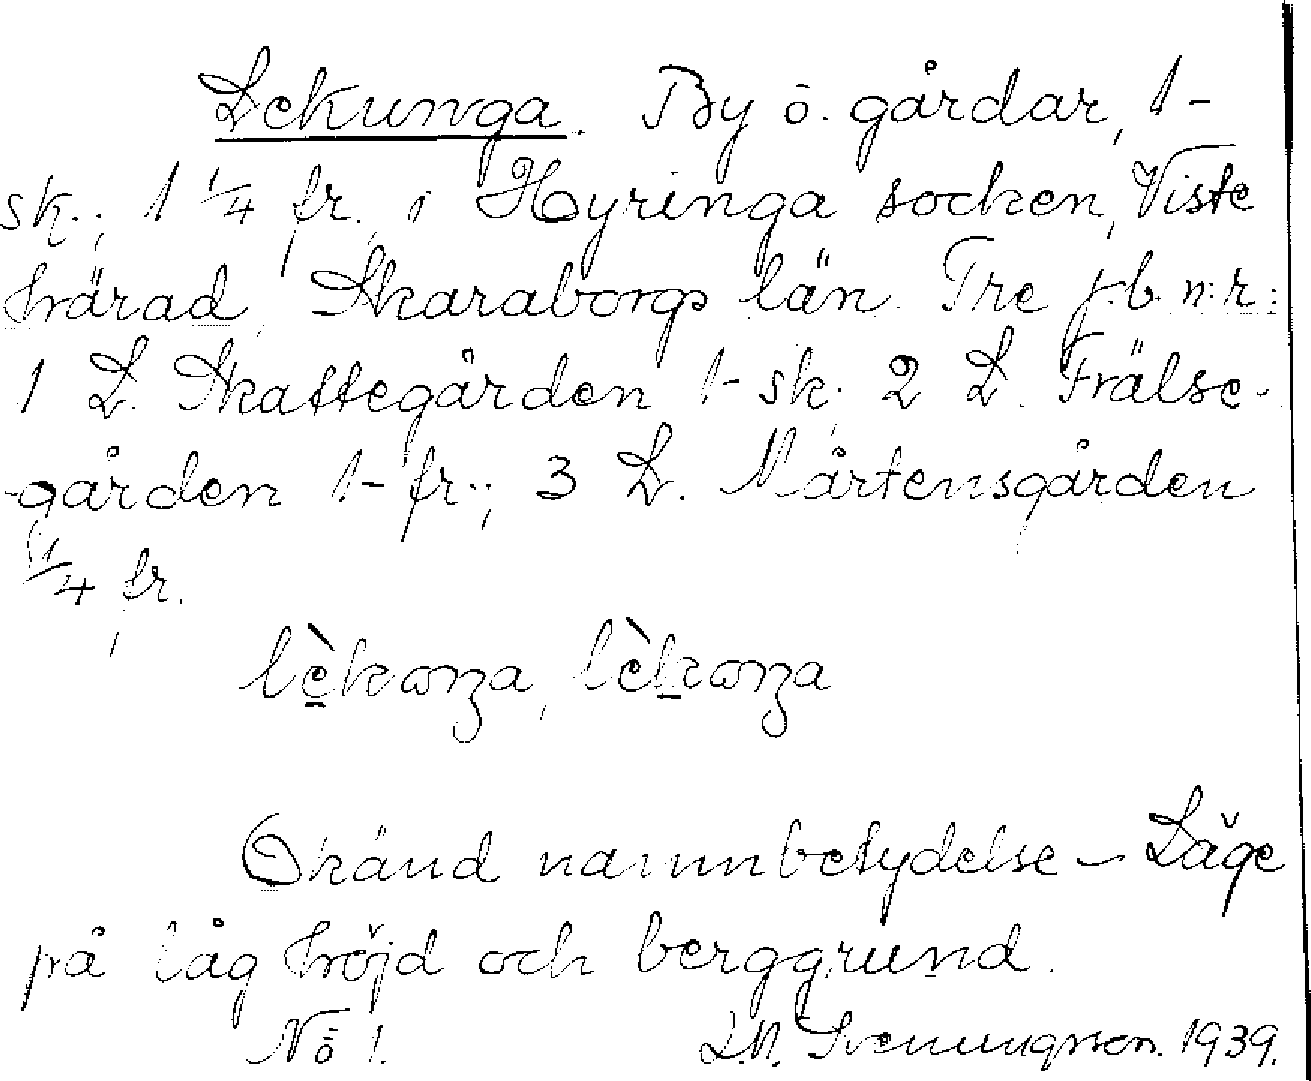 Lekunga. By o. gårdar, 1-
sk.; 1 1/4 fr., i Hyringa socken, Viste
härad, Skaraborgs län. Tre j.b. n:r:
1 L. Skattegården 1- sk; 2 L. Frälse-
gården 1- fr.; 3 L. Mårtensgården
1/4 fr.
lèkoŋa, lèkoŋa
Okänd namnbetydelse – Läge
på låg höjd och berggrund.
No 1. Svenungsson. 1939.